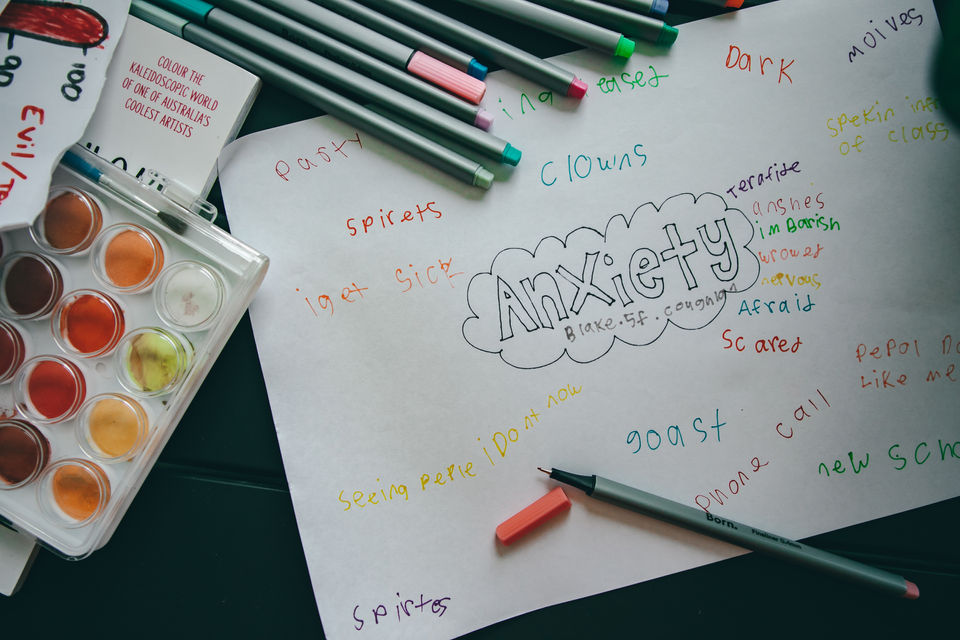 COLOUR THE
KALEIDOSCOPIC WORLD
OF ONE OF AUSTRALIA'S
COOLEST ARTISTS
Evil
ing eases
DARK
moives
party
clowns
spekin
of class
spirets
terafite
anshes
imBarish
nervous
Afraid
Scared
iget Sick
Anxiety
Blake.5f.
pepol
Like me
seeing peple iDont now
goast
phone call
new
Born.
Fineliner 0.4mm
spirtes